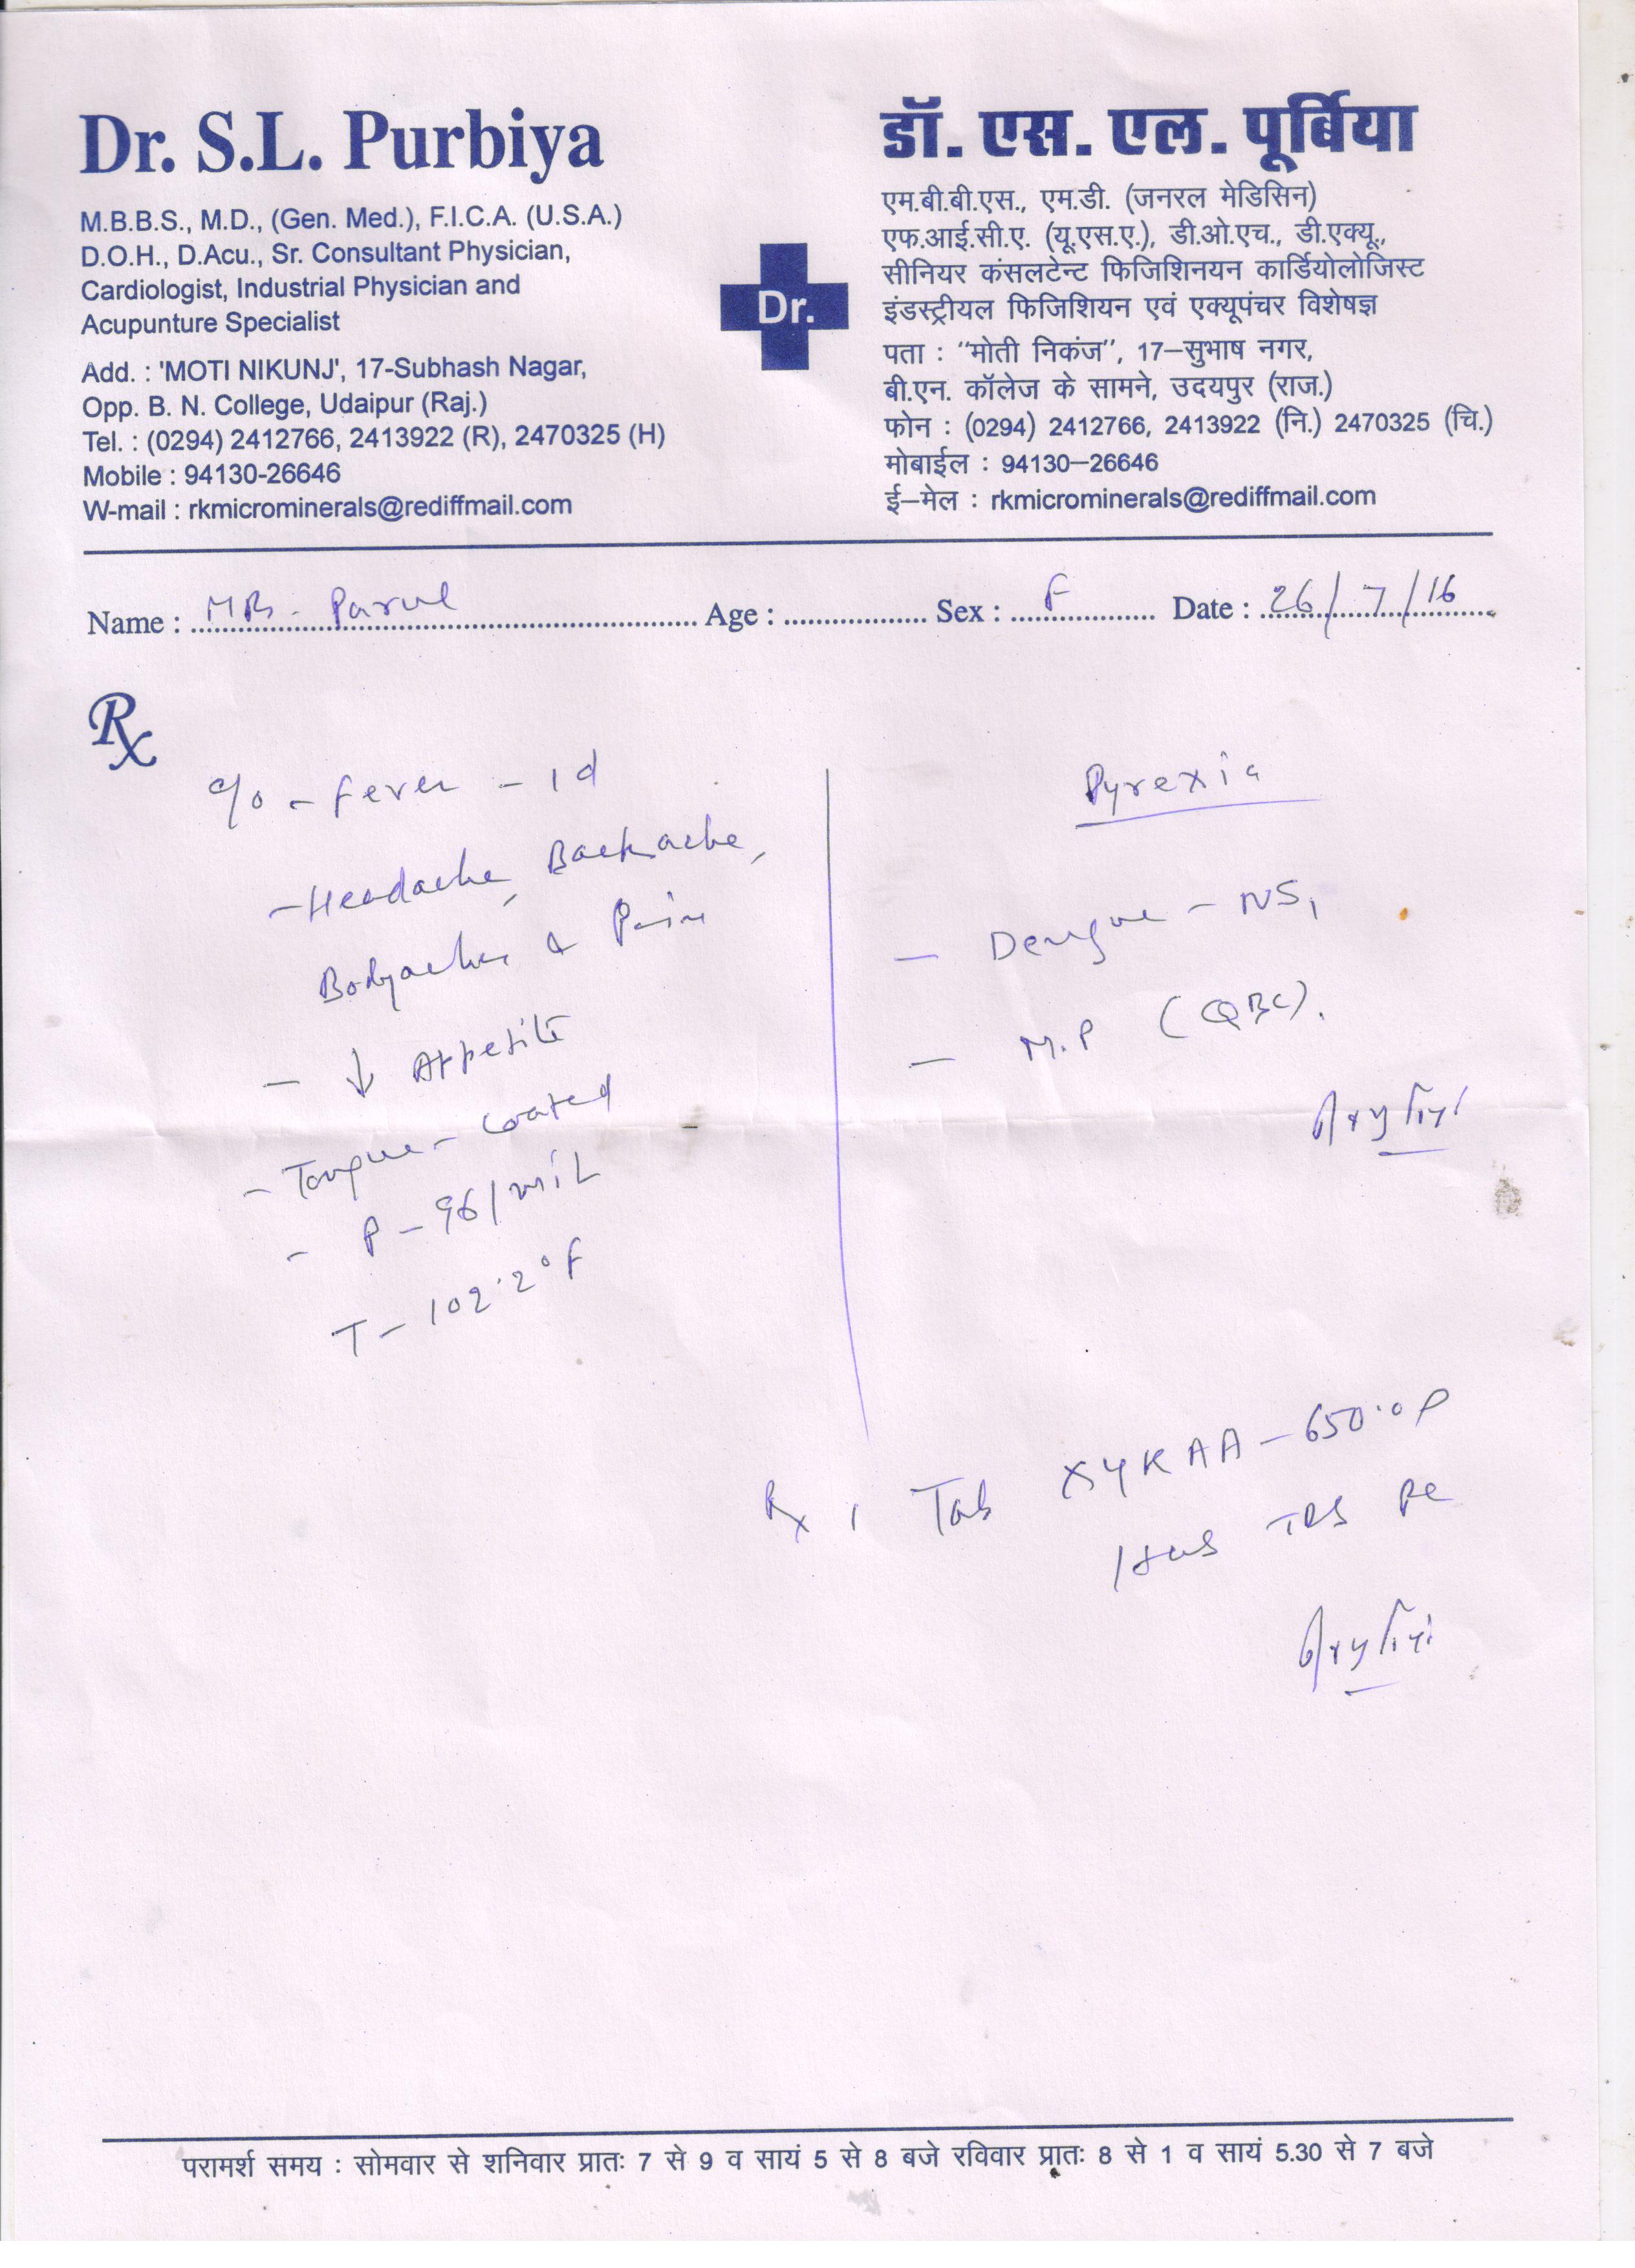 Dr. S.L. Purbiya
M.B.B.S., M.D., (Gen. Med.), F.I.C.A. (U.S.A.)
D.O.H., D.Acu., Sr. Consultant Physician,
Cardiologist, Industrial Physician and
Acupunture Specialist
Add. : 'MOTI NIKUNJ', 17-Subhash Nagar,
Opp. B. N. College, Udaipur (Raj.)
Tel. : (0294) 2412766, 2413922 (R), 2470325 (H)
Mobile : 94130-26646
W-mail : rkmicrominerals@rediffmail.com
Dr.
डॉ. एस. एल. पूर्बिया
एम.बी.बी.एस., एम.डी. (जनरल मेडिसिन)
एफ.आई.सी.ए. (यू.एस.ए.), डी.ओ.एच., डी.एक्यू.,
सीनियर कंसलटेन्ट फिजिशिनयन कार्डियोलोजिस्ट
इंडस्ट्रीयल फिजिशियन एवं एक्यूपंचर विशेषज्ञ
पता : "मोती निकंज", 17–सुभाष नगर,
बी.एन. कॉलेज के सामने, उदयपुर (राज.)
फोन : (0294) 2412766, 2413922 (नि.) 2470325 (चि.)
मोबाईल : 94130–26646
ई–मेल : rkmicrominerals@rediffmail.com
Name : Parul Age : Sex : F Date : 26/7/16
Rx
c/o - fever - 1d
- Headache, Backache,
Bodyaches & Pain
- ↓ Appetite
- Tongue - Coated
- P - 96/mit
T - 102.2°F
Pyrexia
- Dengue - NS1
- M.P (QBC).
Rx 1 Tab XYKAA - 650
TDS PC
परामर्श समय : सोमवार से शनिवार प्रातः 7 से 9 व सायं 5 से 8 बजे रविवार प्रातः 8 से 1 व सायं 5.30 से 7 बजे